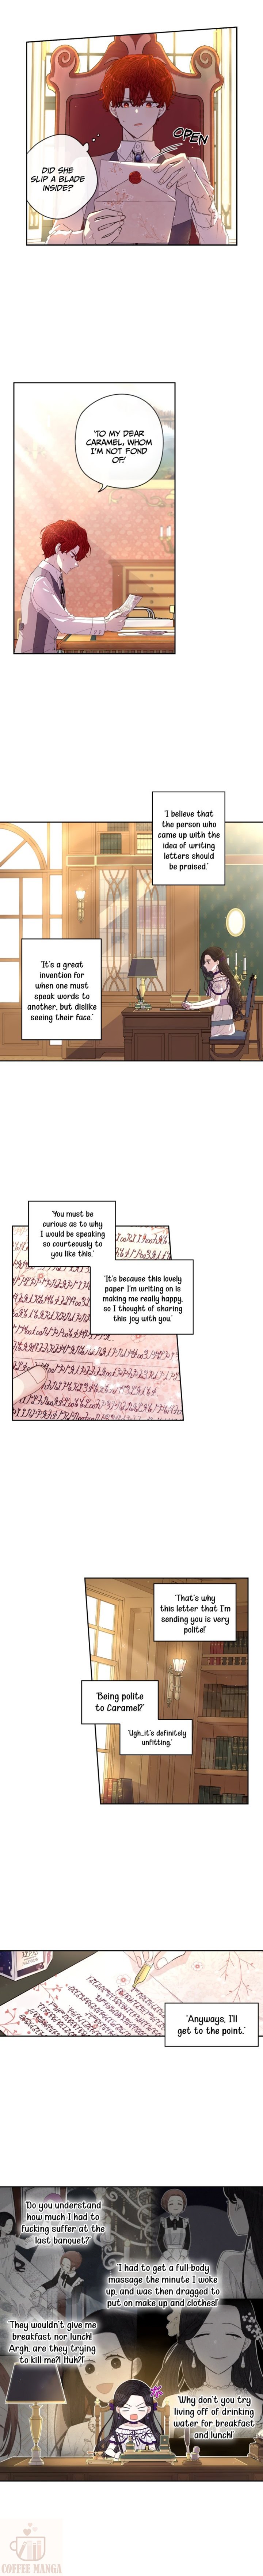 OPEN
DID SHE
SLIP A BLADE
INSIDE?
'TO MY DEAR
CARAMEL, WHOM
I'M NOT FOND
OF.'
'I believe that
the person who
came up with the
idea of writing
letters should
be praised.'
'It's a great
invention for
when one must
speak words to
another, but dislike
seeing their face.'
'You must be
curious as to why
I would be speaking
so courteously to
you like this.'
'It's because this lovely
paper I'm writing on is
making me really happy,
so I thought of sharing
this joy with you.'
'That's why
this letter that I'm
sending you is very
polite!'
'Being polite
to Caramel?'
'Ugh...it's definitely
unfitting.'
'Anyways, I'll
get to the point.'
'Do you understand
how much I had to
fucking suffer at the
last banquet?'
'I had to get a full-body
massage the minute I woke
up, and was then dragged to
put on make up and clothes!'
'They wouldn't give me
breakfast nor lunch!
Argh, are they trying
to kill me?! Huh?!'
'Why don't you try
living off of drinking
water for breakfast
and lunch!'
COFFEE MANGA